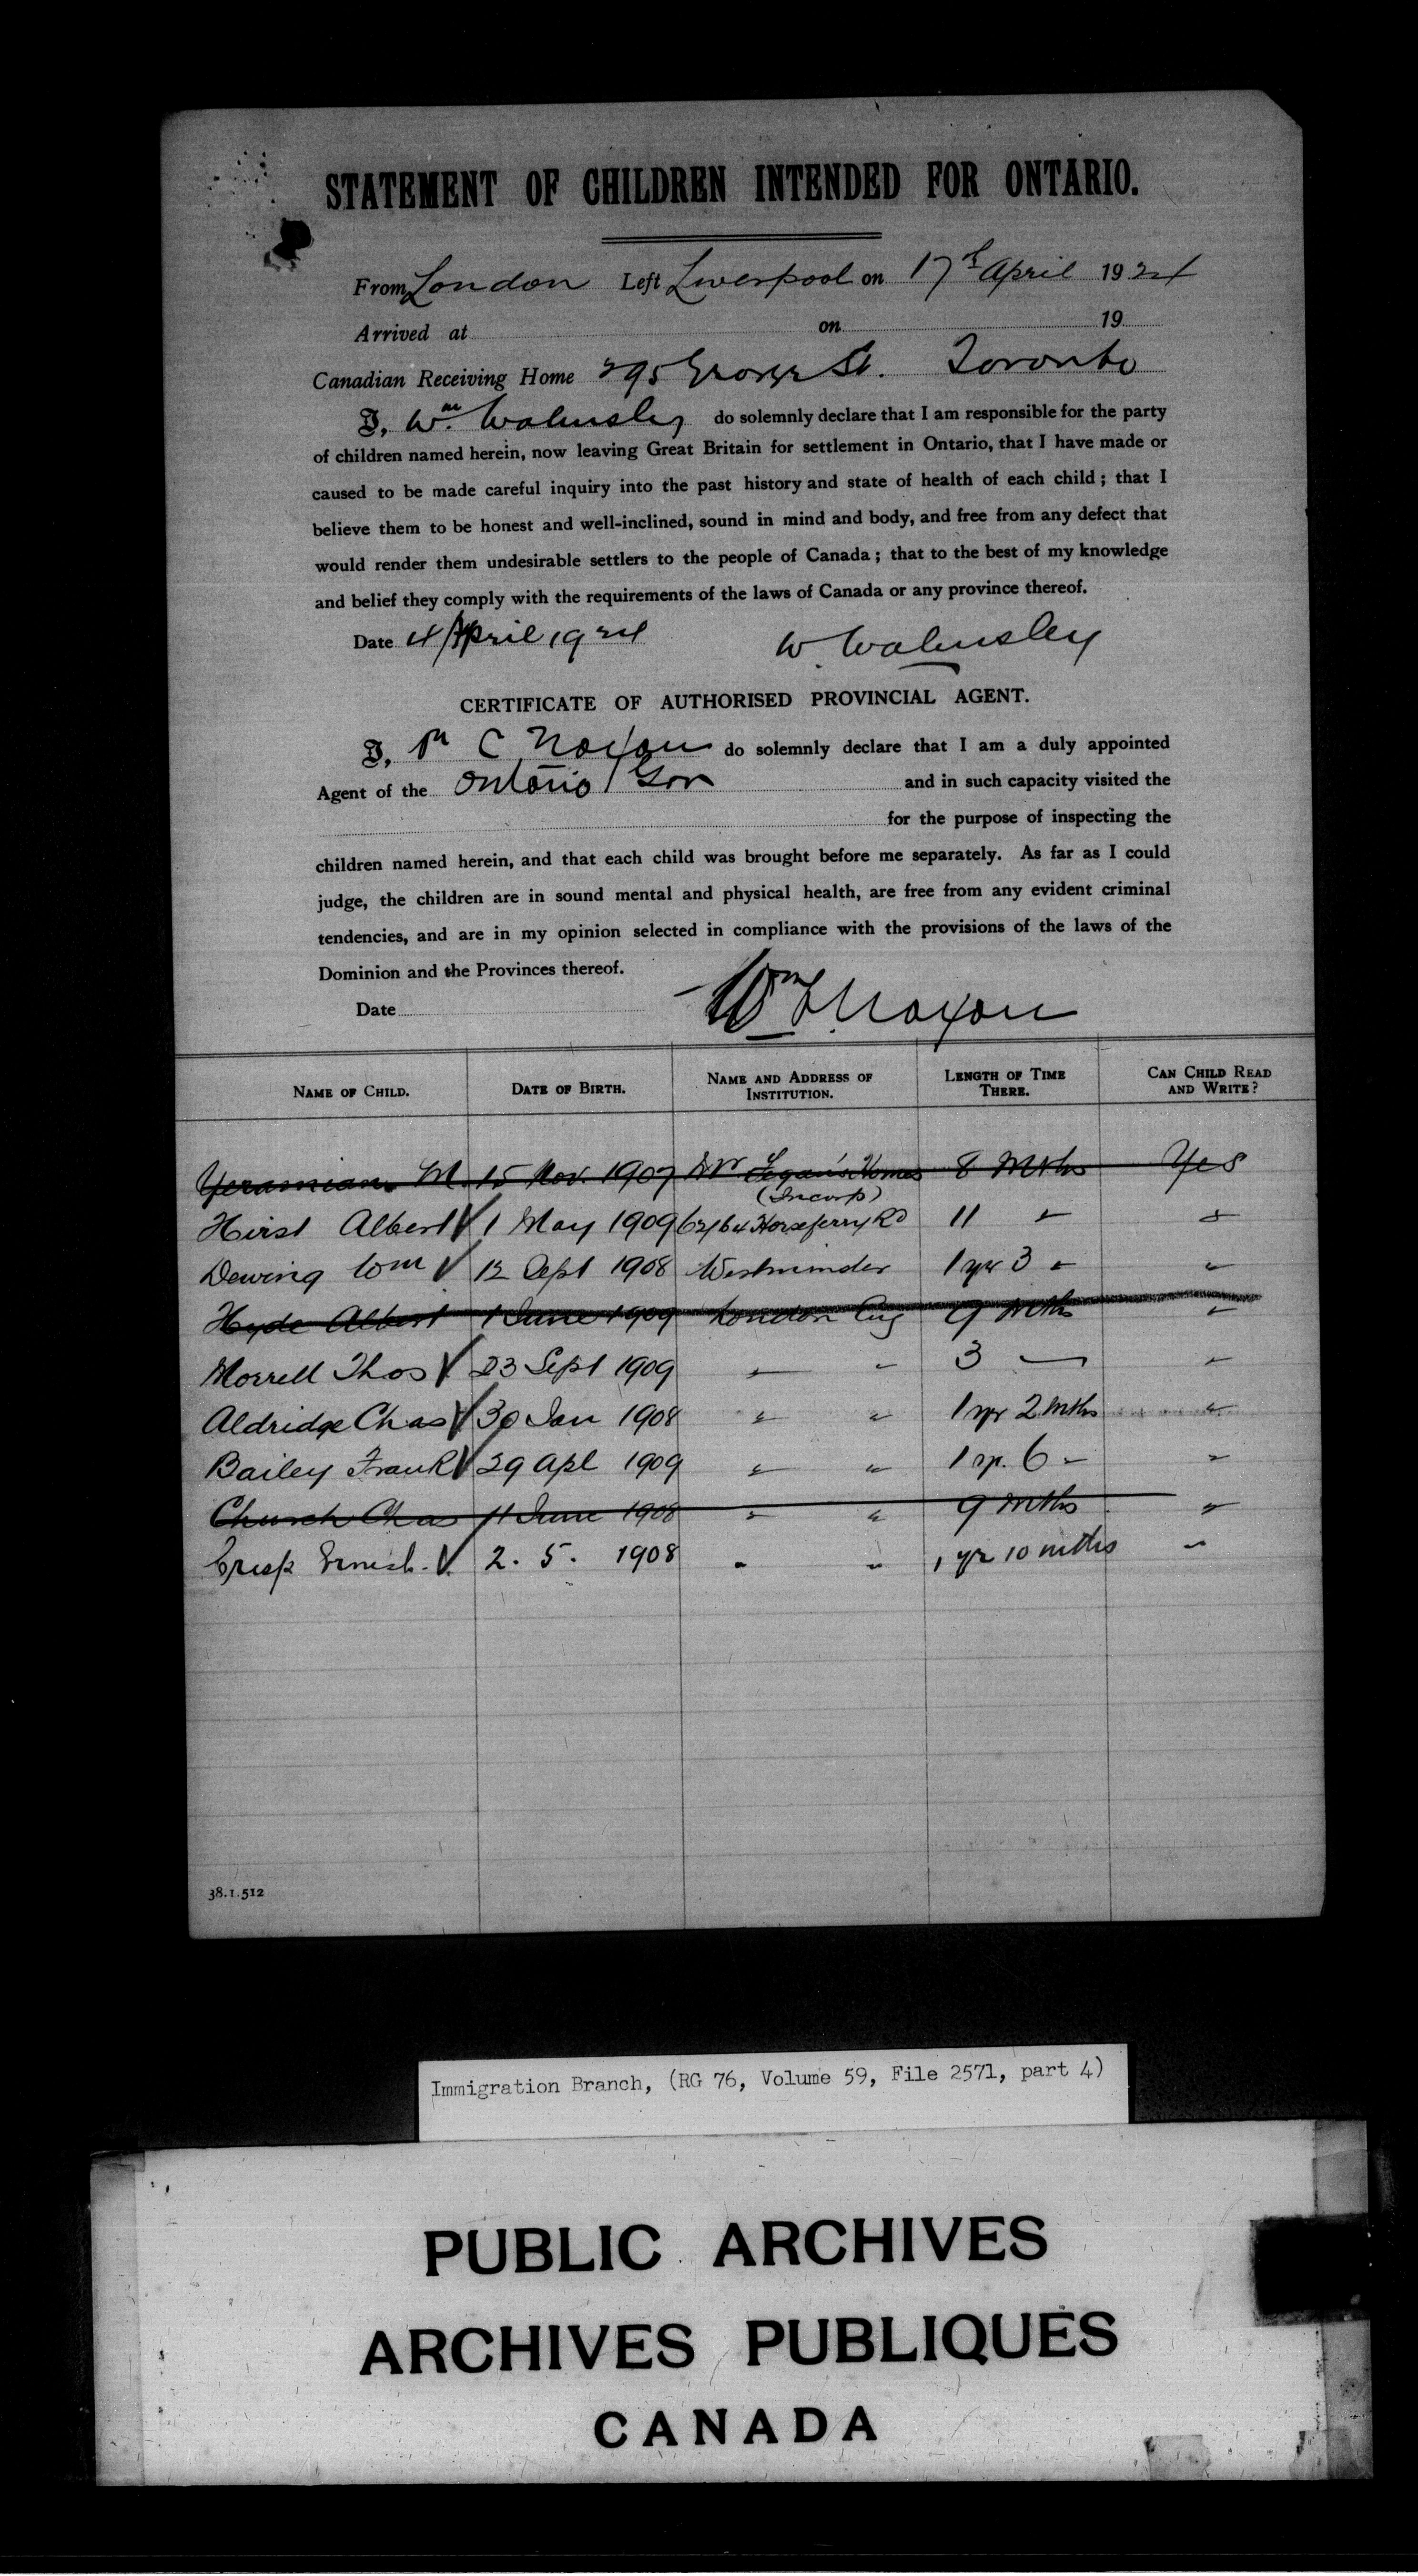 STATEMENT OF CHILDREN INTENDED FOR ONTARIO.
From London Left Liverpool on 17th April 1924
Arrived at on 19
Canadian Receiving Home 295 George St. Toronto
I, Wm Walmsley do solemnly declare that I am responsible for the party
of children named herein, now leaving Great Britain for settlement in Ontario, that I have made or
caused to be made careful inquiry into the past history and state of health of each child; that I
believe them to be honest and well-inclined, sound in mind and body, and free from any defect that
would render them undesirable settlers to the people of Canada; that to the best of my knowledge
and belief they comply with the requirements of the laws of Canada or any province thereof.
Date 4 April 1924 W. Walmsley
CERTIFICATE OF AUTHORISED PROVINCIAL AGENT.
I, C Noxon do solemnly declare that I am a duly appointed
Agent of the Ontario Gov and in such capacity visited the
for the purpose of inspecting the
children named herein, and that each child was brought before me separately. As far as I could
judge, the children are in sound mental and physical health, are free from any evident criminal
tendencies, and are in my opinion selected in compliance with the provisions of the laws of the
Dominion and the Provinces thereof.
Date Wm Noxon
NAME OF CHILD. DATE OF BIRTH. NAME AND ADDRESS OF INSTITUTION. LENGTH OF TIME THERE. CAN CHILD READ AND WRITE?
Yeramian M. 15 Nov. 1907 Dr Fegan's Homes 8 Mths Yes
(Incorp)
Hirst Albert √ 1 May 1909 62/64 Horseferry Rd 11 " "
Dewing Wm √ 12 Sept 1908 Westminster 1 yr 3 " "
Hyde Albert 1 June 1909 London Eng 9 Mths "
Morrell Thos √ 23 Sept 1909 " " 3 — "
Aldridge Chas √ 30 Jan 1908 " " 1 yr 2 mths "
Bailey Frank √ 29 Apl 1909 " " 1 yr. 6 " "
Church Chas 11 June 1908 " " 9 mths "
Crisp Ernest. √ 2. 5. 1908 " " 1 yr 10 mths "
38.1.512
Immigration Branch, (RG 76, Volume 59, File 2571, part 4)
PUBLIC ARCHIVES
ARCHIVES PUBLIQUES
CANADA